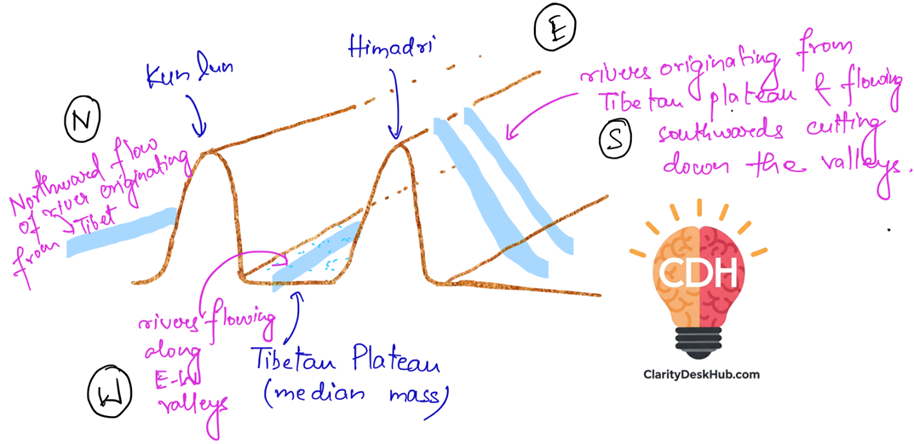 Kunlun
Himadri
E
N
rivers originating from
Tibetan plateau & flowing
southwards cutting
down the valleys.
S
Northward flow
of river originating
from Tibet
rivers flowing
along
E-W
valleys
W
Tibetan Plateau
(median mass)
CDH
ClarityDeskHub.com